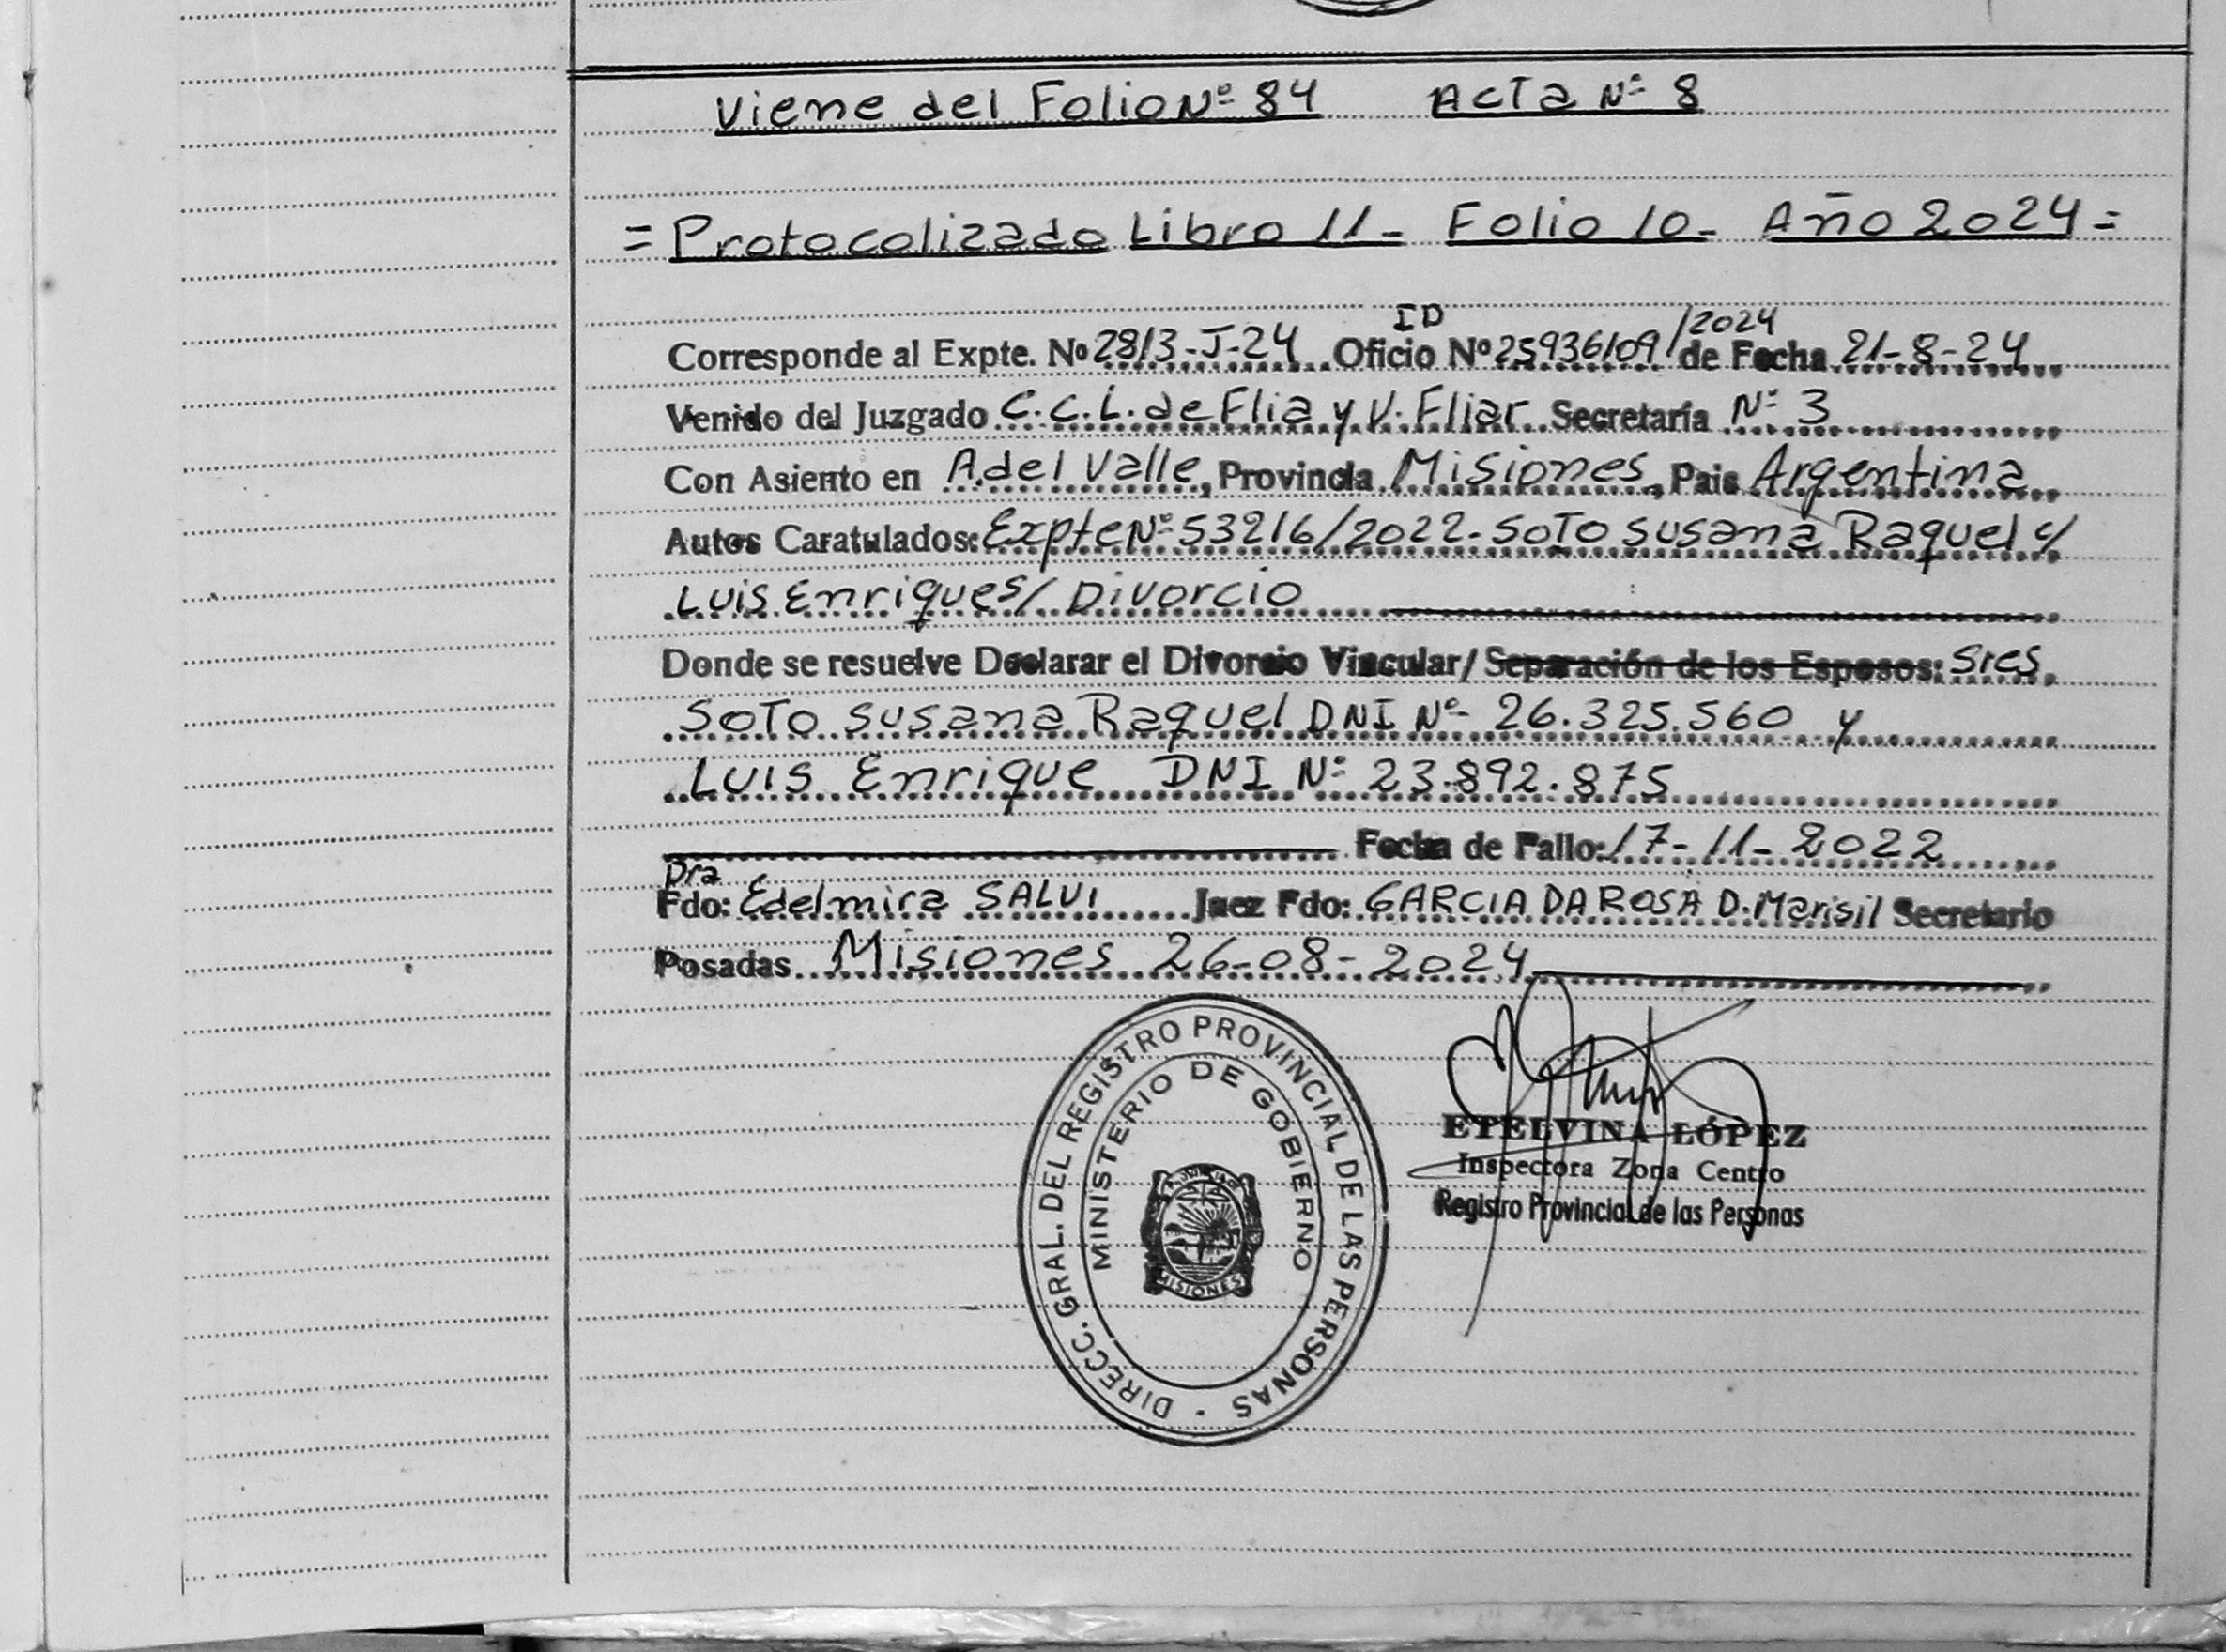 Viene del Folio Nº 84 Acta Nº 8
= Protocolizado Libro 11- Folio 10- Año 2024 =
ID /2024
Corresponde al Expte. Nº 2813-J-24 Oficio Nº 25936109 de Fecha 21-8-24
Venido del Juzgado C.C.L. de Flia y V. Fliar Secretaría Nº 3
Con Asiento en A. del Valle, Provincia Misiones, Pais Argentina
Autos Caratulados: Expte Nº 53216/2022- Soto Susana Raquel c/
Luis Enrique s/ Divorcio
Donde se resuelve Declarar el Divorcio Vincular/ Separación de los Esposos: Sres.
Soto Susana Raquel DNI Nº 26.325.560 y
Luis Enrique DNI Nº 23.892.875
Fecha de Fallo: 17-11-2022
Dra
Fdo: Edelmira SALVI Juez Fdo: GARCIA DA ROSA D. Marisil Secretario
Posadas Misiones 26-08-2024
DIRECC. GRAL. DEL REGISTRO PROVINCIAL DE LAS PERSONAS -
MINISTERIO DE GOBIERNO
MISIONES
ETELVINA LÓPEZ
Inspectora Zona Centro
Registro Provincial de las Personas